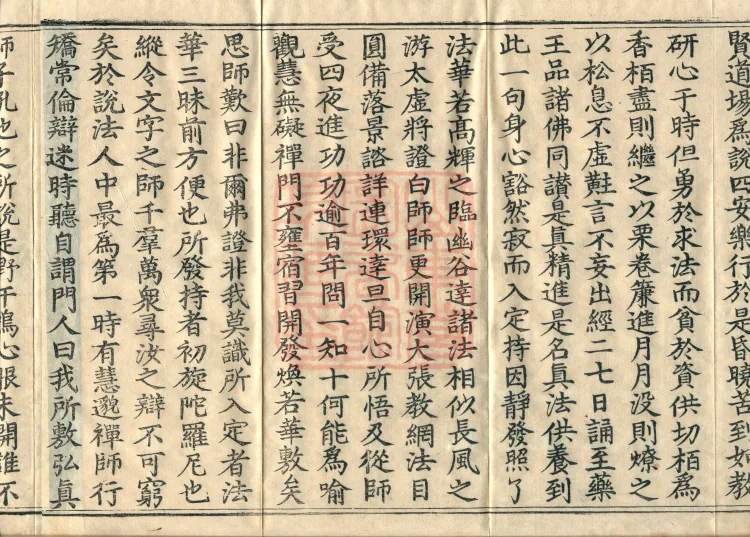 賢道場爲說四安樂行於是昏曉苦到如教
研心于時但勇於求法而貧於資供切栢爲
香栢盡則繼之以栗卷簾進月月没則燎之
以松息不虛黈言不妄出經二七日誦至藥
王品諸佛同讃是眞精進是名眞法供養到
此一句身心豁然寂而入定持因靜發照了
法華若高輝之臨幽谷達諸法相似長風之
游太虛將證白師師更開演大張教網法目
圓備落景諮詳連環達旦自心所悟及從師
受四夜進功功逾百年問一知十何能爲喻
觀慧無礙禪門不壅宿習開發煥若華敷矣
思師歎曰非爾弗證非我莫識所入定者法
華三昧前方便也所發持者初旋陀羅尼也
縱令文字之師千羣萬衆尋汝之辯不可窮
矣於說法人中最爲第一時有慧邈禪師行
矯常倫辯迷時聽自謂門人曰我所敷弘眞
師子吼也之所說是野干鳴心眼未開誰不